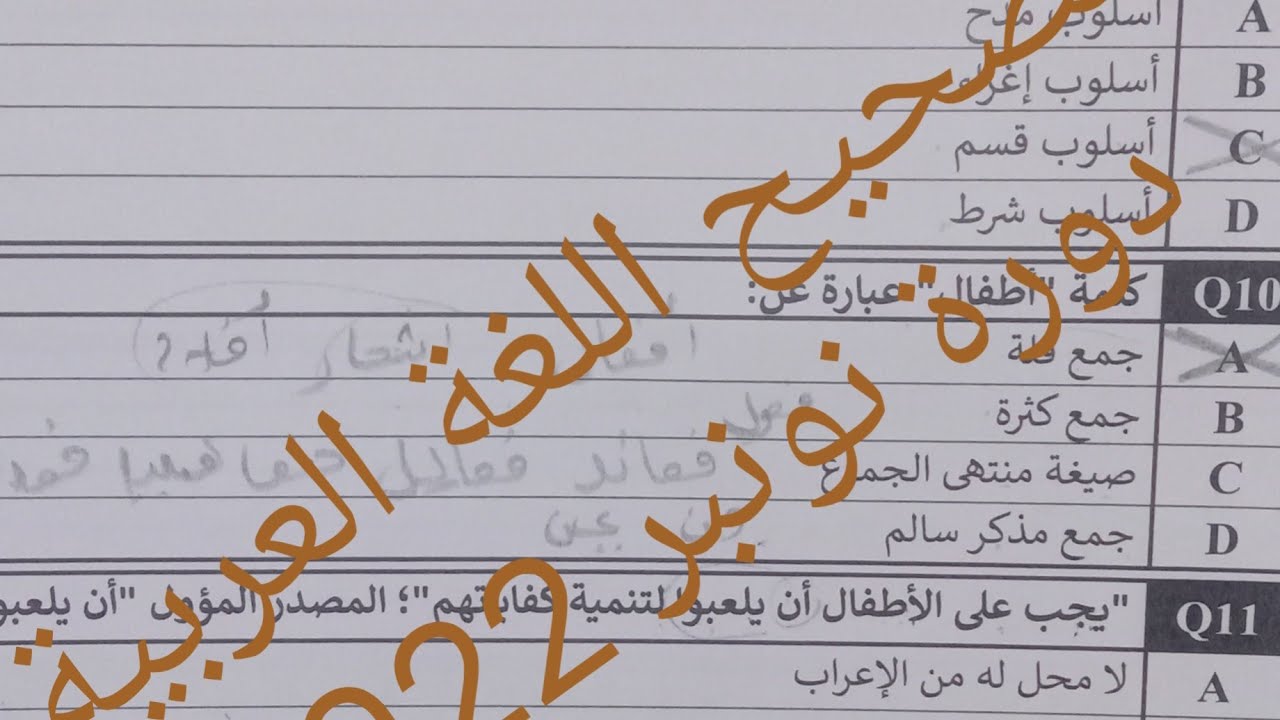 A أسلوب مدح
B أسلوب إغراء
C أسلوب قسم
D أسلوب شرط
Q10 كلمة "أطفال" عبارة عن:
A جمع قلة
B جمع كثرة
C صيغة منتهى الجموع
D جمع مذكر سالم
Q11 "يجب على الأطفال أن يلعبوا لتنمية كفاياتهم"؛ المصدر المؤول "أن يلعبو
A لا محل له من الإعراب
تصحيح اللغة العربية
دورة نونبر 2022